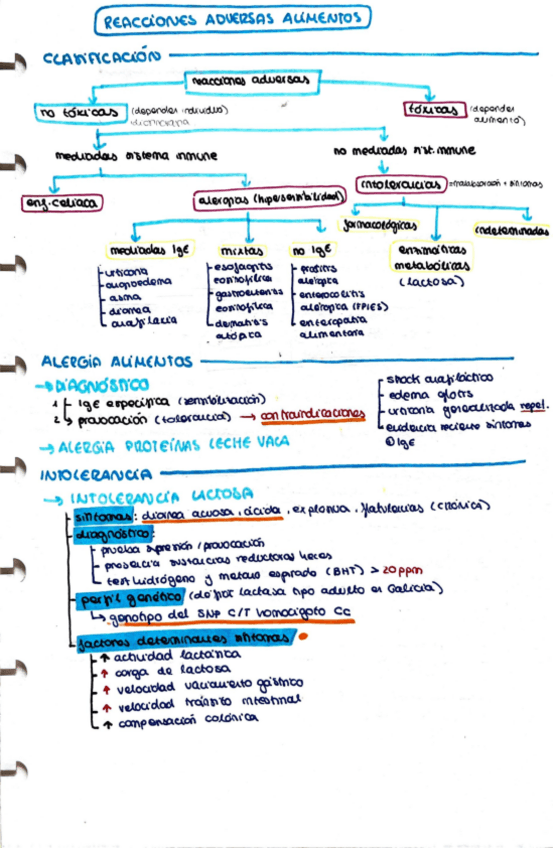 REACCIONES ADVERSAS ALIMENTOS
CLASIFICACIÓN
reacciones adversas
no tóxicas (dependen individuo)
tóxicas (dependen alimento)
mediadas sistema inmune
no mediadas sist. inmune
enf. celiaca
alergias (hipersensibilidad)
intolerancias = malabsorción + síntomas
farmacológicas
enzimáticas
metabólicas
(lactosa)
indeterminadas
mediadas IgE
- urticaria
- angioedema
- asma
- diarrea
- anafilaxia
mixtas
- esofagitis
eosinofílica
- gastroenteritis
eosinofílica
- dermatitis
atópica
no IgE
- proctitis
alérgica
- enterocolitis
alérgica (FPIES)
- enteropatía
alimentaria
ALERGIA ALIMENTOS
→ DIAGNÓSTICO
1 IgE específica (sensibilización)
2 provocación (tolerancia) → contraindicaciones
- shock anafiláctico
- edema glotis
- urticaria generalizada repet.
- evidencia reciente síntomas
⊕ IgE
→ ALERGIA PROTEÍNAS LECHE VACA
INTOLERANCIA
→ INTOLERANCIA LACTOSA
- síntomas: diarrea acuosa, ácida, explosiva, flatulencias (crónica)
- diagnóstico:
- prueba supresión / provocación
- presencia sustancias reductoras heces
- test hidrógeno y metano espirado (BHT) > 20 ppm
- perfil genético (déficit lactasa tipo adulto es Galicia)
↳ genotipo del SNP C/T homocigoto CC
- factores determinantes síntomas
- ↑ actividad lactásica
- ↑ carga de lactosa
- ↑ velocidad vaciamiento gástrico
- ↑ velocidad tránsito intestinal
- ↑ compensación colónica